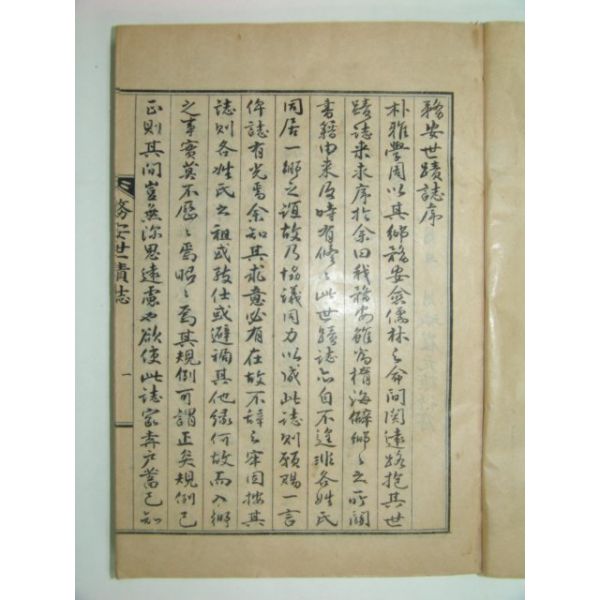 務安世蹟誌序
朴雅學周以其鄉務安僉儒林之命間関遠路抱其世
蹟誌来求序於余曰我務安雖為楕海僻鄉〻之所関
書籍由来随時有修〻此世蹟誌亦自不逡班各姓氏
同居一鄉之誼故乃協議同力以成此誌則願賜一言
俾誌有光焉余知其求意必有在故不辞之牢固按其
誌則各姓氏之祖或致仕或避禍其他緣何故而入鄉
之事實莫不歷〻焉昭〻焉其規例可謂正矣規例已
正則其間豈無深思遠慮也欲使此誌家弆戶蓄已知
務安世蹟志
一